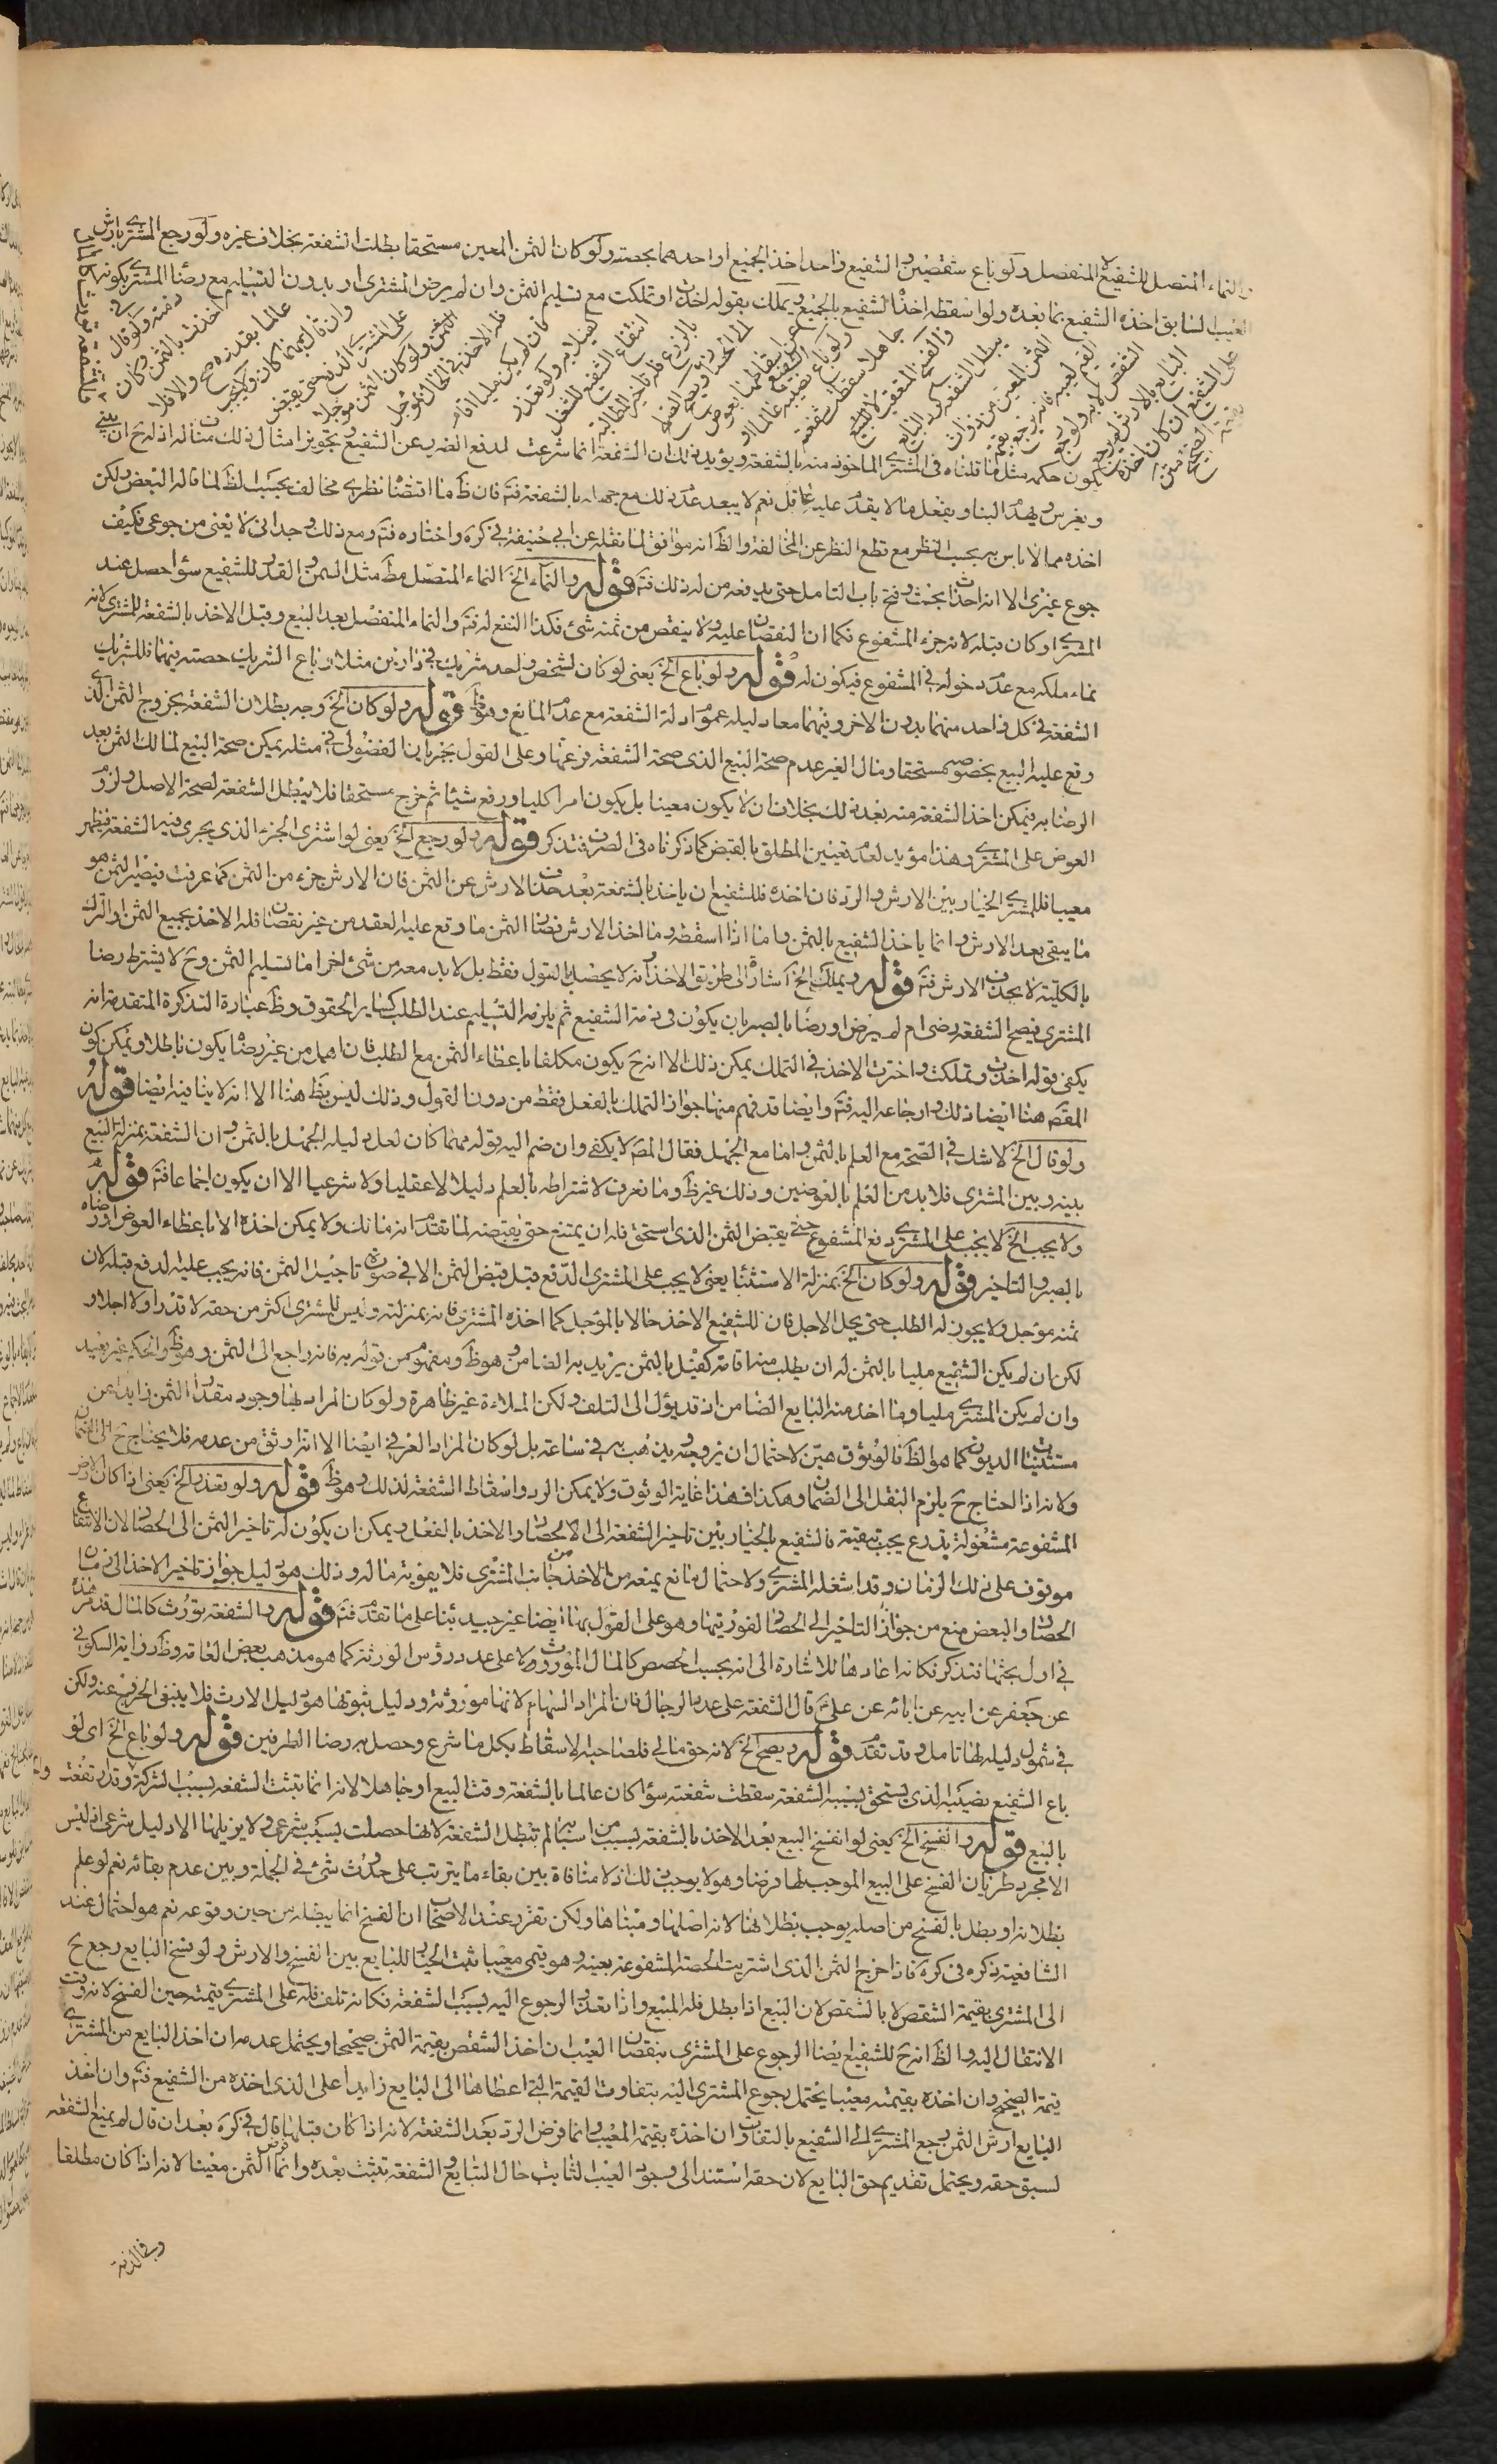 والنماء المتصل للشفيع لا المنفصل ولو باع شقصين والشفيع واحد اخذ الجميع او احدهما بحصته ولو كان الثمن المعين مستحقا بطلت الشفعة بخلاف غيره ولو رجع المشتري بارش
العيب السابق اخذه الشفيع بما بعده ولو اسقطه اخذ الشفيع بالجميع ويملك بقوله اخذت او تملكت مع تسليم الثمن وان لم يرض المشتري او بدون التسليم مع رضا المشتري بكونه
في ذمته ولو قال اخذت بالثمن وكان عالما بقدره صح والا فلا وان قال بمهما كان ولا يجب على المشتري الدفع حتى يقبض الثمن ولو كان الثمن مؤجلا فله الاخذ في الحال بمؤجل فان لم يكن مليا اقام كفيلا به ولو تعذر انتفاع الشفيع للشغل بالزرع فله تاخير المطالبة الى الحصاد ويصح الصلح عن اسقاطها بعوض ولو باع الشفيع نصيبه عالما او جاهلا سقطت شفعته والفسخ المتعقب لا يبطل الشفعة كرد البايع الثمن المعين من ذوات القيم لعيبه فانه يرجع بقيمة الشقص لا به ولو رجع البايع بالارش لم يرجع على الشفيع ان كان اخذه بقيمة الصحيح
يكون حكمه مثل ما قلناه في المشتري الماخوذ منه بالشفعة ويؤيد ذلك ان الشفعة انما شرعت لدفع الضرر عن الشفيع وتجويز امثال ذلك مناله اذ له ح ان يبني
ويغرس ويهدم البناء ويفعل ما لا يقدم عليه عاقل نعم لا يبعد عدم ذلك مع جهله بالشفعة فتم فان ظ ما اقتضا نظري مخالف بحسب الظ لما قاله البعض ولكن
اخذه مما لا باس به بحسب النظر مع قطع النظر عن المخالفة والظ انه موافق لما نقله عن ابي حنيفة في كره واختاره فتم ومع ذلك وجداني لا يغني من جوعي فكيف
جوع غيري الا انه احداث بحث وفتح باب التامل حتى يدفعه من له ذلك فتم قوله والنماء الخ النماء المتصل مط مثل السمن والقد للشفيع سواء حصل عند
المشتري او كان قبله لانه جزء المشفوع فكما ان النقصان عليه ولا ينقص من ثمنه شئ فكذا النفع له فتم والنماء المنفصل بعد البيع وقبل الاخذ بالشفعة للمشتري لانه
نماء ملكه مع عدم دخوله في المشفوع فيكون له قوله ولو باع الخ يعني لو كان لشخص واحد شريك في دارين مثلا وباع الشريك حصته منهما فللشريك
الشفعة في كل واحد منهما بدون الاخر وفيهما معا دليله عموم ادلة الشفعة مع عدم المانع وهو ظ قوله ولو كان الخ وجه بطلان الشفعة بخروج الثمن الذي
وقع عليه البيع بخصوصه مستحقا ومال الغير عدم صحة البيع الذي صحة الشفعة فرعها وعلى القول بجريان الفضولي في مثله يمكن صحة البيع لمالك الثمن بعد
الرضا به فيمكن اخذ الشفعة منه بعد ذلك بخلاف ان لا يكون معينا بل يكون امرا كليا ودفع شيئا ثم خرج مستحقا فلا يبطل الشفعة لصحة الاصل ولزوم
العوض على المشتري وهذا مؤيد لعدم تعيين المطلق بالقبض كما ذكرناه في الصرف فتذكر قوله ولو رجع الخ يعني لو اشترى الجزء الذي يجري فيه الشفعة فظهر
معيبا فللمشتري الخيار بين الارش والرد فان اخذه فللشفيع ان ياخذ بالشفعة بعد حذف الارش عن الثمن فان الارش جزء من الثمن كما عرفت فيصير الثمن هو
ما يبقى بعد الارش وانما ياخذ الشفيع بالثمن واما اذا اسقطه وما اخذ الارش فصار الثمن ما وقع عليه العقد من غير نقصان فله الاخذ بجميع الثمن او الترك
بالكلية لا بحذف الارش فتم قوله ويملك الخ اشارة الى طريق الاخذ وانه لا يحصل بالقول فقط بل لا بد معه من شئ اخر اما تسليم الثمن وح لا يشترط رضا
المشتري فيصح الشفعة رضى ام لم يرض او رضا بالصبر بان يكون في ذمة الشفيع ثم يلزمه التسليم عند الطلب كساير الحقوق وظ عبارة التذكرة المتقدمة انه
يكفي بقوله اخذت وتملكت واخترت الاخذ في التملك يمكن ذلك الا انه ح يكون مكلفا باعطاء الثمن مع الطلب فان اهمل من غير رضا يكون باطلا ويمكن كون
المقصد هنا ايضا ذلك وارجاعه اليه فتم وايضا قد فهم منها جواز التملك بالفعل فقط من دون القول وذلك ليس بظ هنا الا انه لا ينافيه ايضا قوله
ولو قال الخ لا شك في الصحة مع العلم بالثمن واما مع الجهل فقال المص لا يكفي وان ضم اليه قوله مهما كان لعل دليله الجهل بالثمن وان الشفعة بمنزلة البيع
بينه وبين المشتري فلا بد من العلم بالعوضين وذلك غير ظ وما نعرف لاشتراطه بالعلم دليلا لا عقليا ولا شرعيا الا ان يكون اجماعا فتم قوله
ولا يجب الخ لا يجب على المشتري دفع المشفوع حتى يقبض الثمن الذي استحق فله ان يمتنع حتى يقبضه لما تقدم انه مالك ولا يمكن اخذه الا باعطاء العوض او رضاه
بالصبر والتاخير قوله ولو كان الخ بمنزلة الاستثناء يعني لا يجب على المشتري الدفع قبل قبض الثمن الا في صورة تاجيل الثمن فانه يجب عليه الدفع قبله لان
ثمنه مؤجل ولا يجوز له الطلب حتى يحل الاجل فان للشفيع الاخذ حالا بالمؤجل كما اخذه المشتري فانه بمنزلته وليس للمشتري اكثر من حقه لا قدرا ولا اجلا و
لكن ان لم يكن الشفيع مليا بالثمن له ان يطلب منه اقامة كفيل بالثمن يريد به الضامن وهو ظ ومفهوم من قوله به فانه راجع الى الثمن وهو ظ والحكم غير بعيد
وان لم يكن المشتري مليا وما اخذ منه البايع الضامن اذ قد يؤل الى التلف ولكن الملاءة غير ظاهرة ولو كان المراد بها وجود مقدار الثمن زايدا عن
مستثنيات الديون كما هو الظ فالوثوق هين لاحتمال ان يروح ويذهب به في ساعته بل لو كان المراد العرفي ايضا الا انه اوثق من عدمه فلا يحتاج ح الى الضمان
ولانه اذا احتاج ح يلزم النقل الى الضمان وهكذا فهذا غاية الوثوق ولا يمكن الرد واسقاط الشفعة لذلك وهو ظ قوله ولو تعذر الخ يعني اذا كان الارض
المشفوعة مشغولة بزرع يجب تبقيته فالشفيع بالخيار بين تاخير الشفعة الى الحصاد والاخذ بالفعل ويمكن ان يكون له تاخير الثمن الى الحصاد لان الانتفاع
موقوف على ذلك الزمان وقد اشغله المشتري ولاحتمال مانع يمنعه من الاخذ من جانب المشتري فلا يفوته ماله وذلك هو دليل جواز تاخير الاخذ الى زمان
الحصاد والبعض منع من جواز التاخير الى الحصاد لفوريتها وهو على القول بها ايضا غير جيد بناء على ما تقدم فتم قوله والشفعة تورث كالمال قد مر هذه
في اول بحثها فتذكر فكانه اعادها للاشارة الى انه بحسب الحصص كالمال الموروث ولا على عدد رؤس الورثة كما هو مذهب بعض العامة وظ رواية السكوني
عن جعفر عن ابيه عن ابائه عن علي ع قال الشفعة على عدد الرجال فان المراد السهام لانها موروثة ودليل ثبوتها هو دليل الارث فلا ينبغي الخروج عنه ولكن
في شمول دليله لها تامل وقد تقدم قوله ويصح الخ لانه حق مالي فلصاحبه الاسقاط بكل ما شرع وحصل به رضا الطرفين قوله ولو باع الخ اي لو
باع الشفيع نصيبه الذي يستحق بسببه الشفعة سقطت شفعته سواء كان عالما بالشفعة وقت البيع او جاهلا لانه انما تثبت الشفعة بسبب الشركة وقد ارتفعت
بالبيع قوله والفسخ الخ يعني لو انفسخ البيع بعد الاخذ بالشفعة بسبب من اسبابه لم تبطل الشفعة لانها حصلت بسبب شرعي ولا يزيلها الا دليل شرعي اذ ليس
الا مجرد طريان الفسخ على البيع الموجب لها فرضا وهو لا يوجب ذلك اذ لا منافاة بين بقاء ما يترتب على حدوث شئ في الجملة وبين عدم بقائه نعم لو علم
بطلانه او بطل بالفسخ من اصله يوجب بطلانها لانه اصلها ومبناها ولكن تقرر عند الاصحاب ان الفسخ انما يبطله من حين وقوعه نعم هو احتمال عند
الشافعية ذكره في كره فاذا خرج الثمن الذي اشتريت الحصة المشفوعة بعينه وهو قيمي معيبا ثبت الخيار للبايع بين الفسخ والارش ولو فسخ البايع رجع ح
الى المشتري بقيمة الشقص لا بالشقص لان البيع اذا بطل فله المبيع واذا تعذر الرجوع اليه بسبب الشفعة فكانه تلف فله على المشتري قيمته حين الفسخ لانه وقت
الانتقال اليه والظ انه ح للشفيع ايضا الرجوع على المشتري بنقصان العيب ان اخذ الشقص بقيمة الثمن صحيحا ويحتمل عدمه ان اخذ البايع من المشتري
قيمة الصحيح وان اخذه بقيمته معيبا يحتمل رجوع المشتري اليه بتفاوت القيمة التي اعطاها الى البايع زايدا على الذي اخذه من الشفيع فتم وان اخذ
البايع ارش الثمن رجع المشتري الى الشفيع بالتفاوت ان اخذه بقيمة المعيب وانما فرض الرد بعد الشفعة لانه اذا كان قبلها قال في كره بعد ان قال لم يمنع الشفعة
لسبق حقه ويحتمل تقديم حق البايع لان حقه استند الى وجود العيب الثابت حال التبايع والشفعة تثبت بعده وانما فرض الثمن معينا لانه اذا كان مطلقا
وفي الذمة